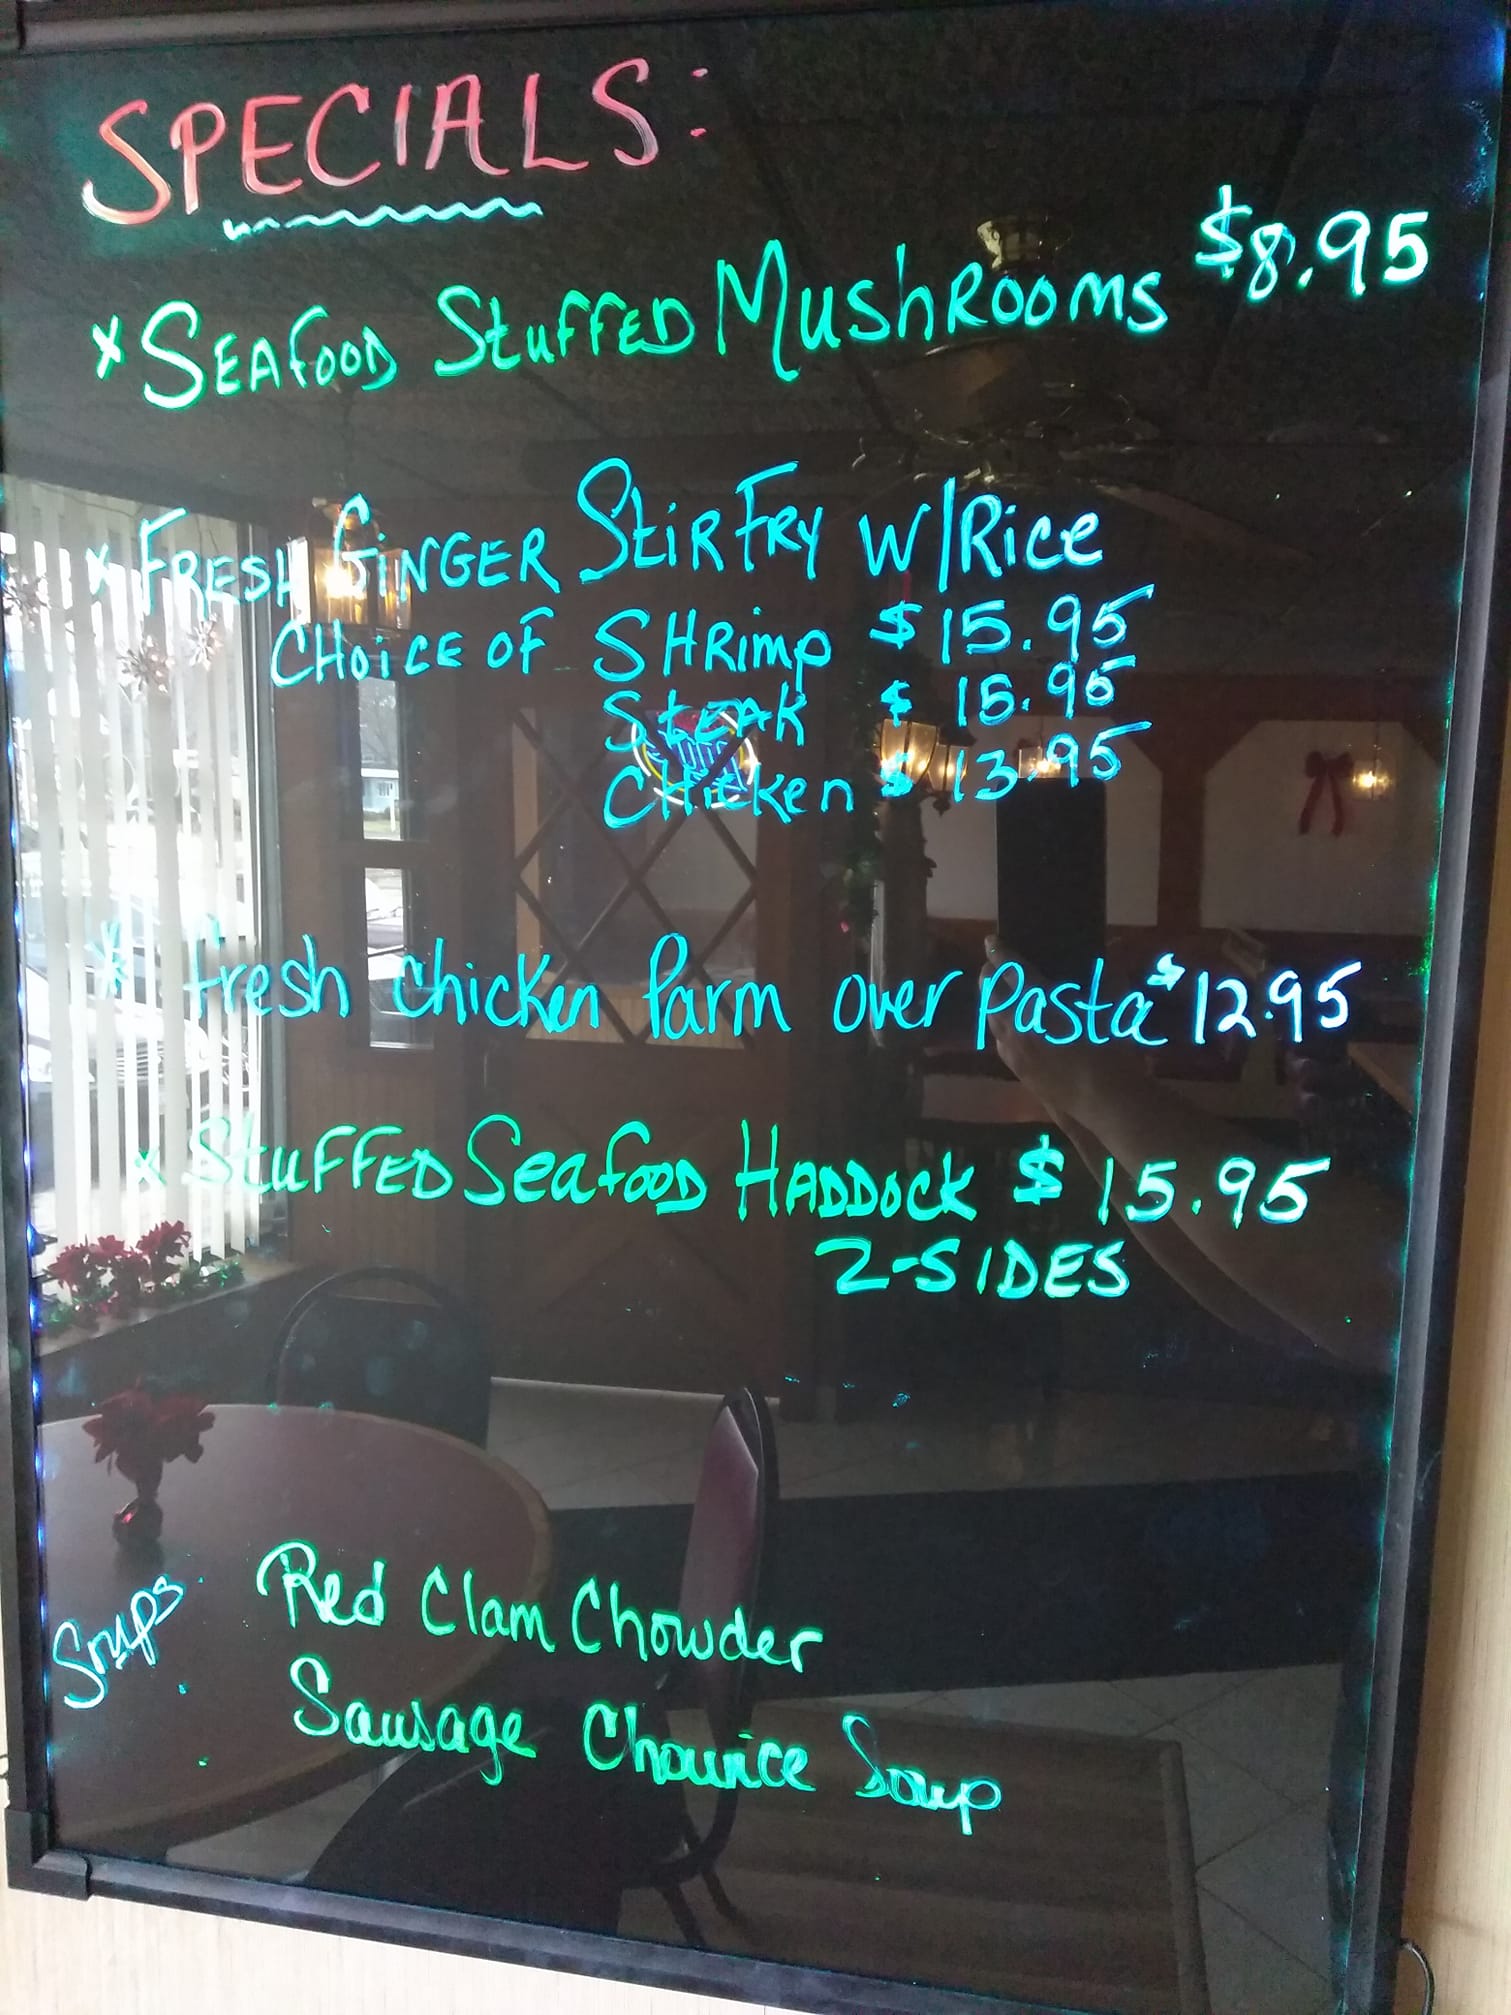 SPECIALS:
* SEAfOOD StuFFED MushRooms $8.95
* FRESH GiNGER StiR FRY W/Rice
CHOiCE OF SHRimp $15.95
StEAK $15.95
CHicken $13.95
* fresh chicken Parm over pasta $12.95
* StuFFED SeafooD HADDocK $15.95
2-SIDES
Soups
Red Clam Chowder
Sausage Chourice Soup